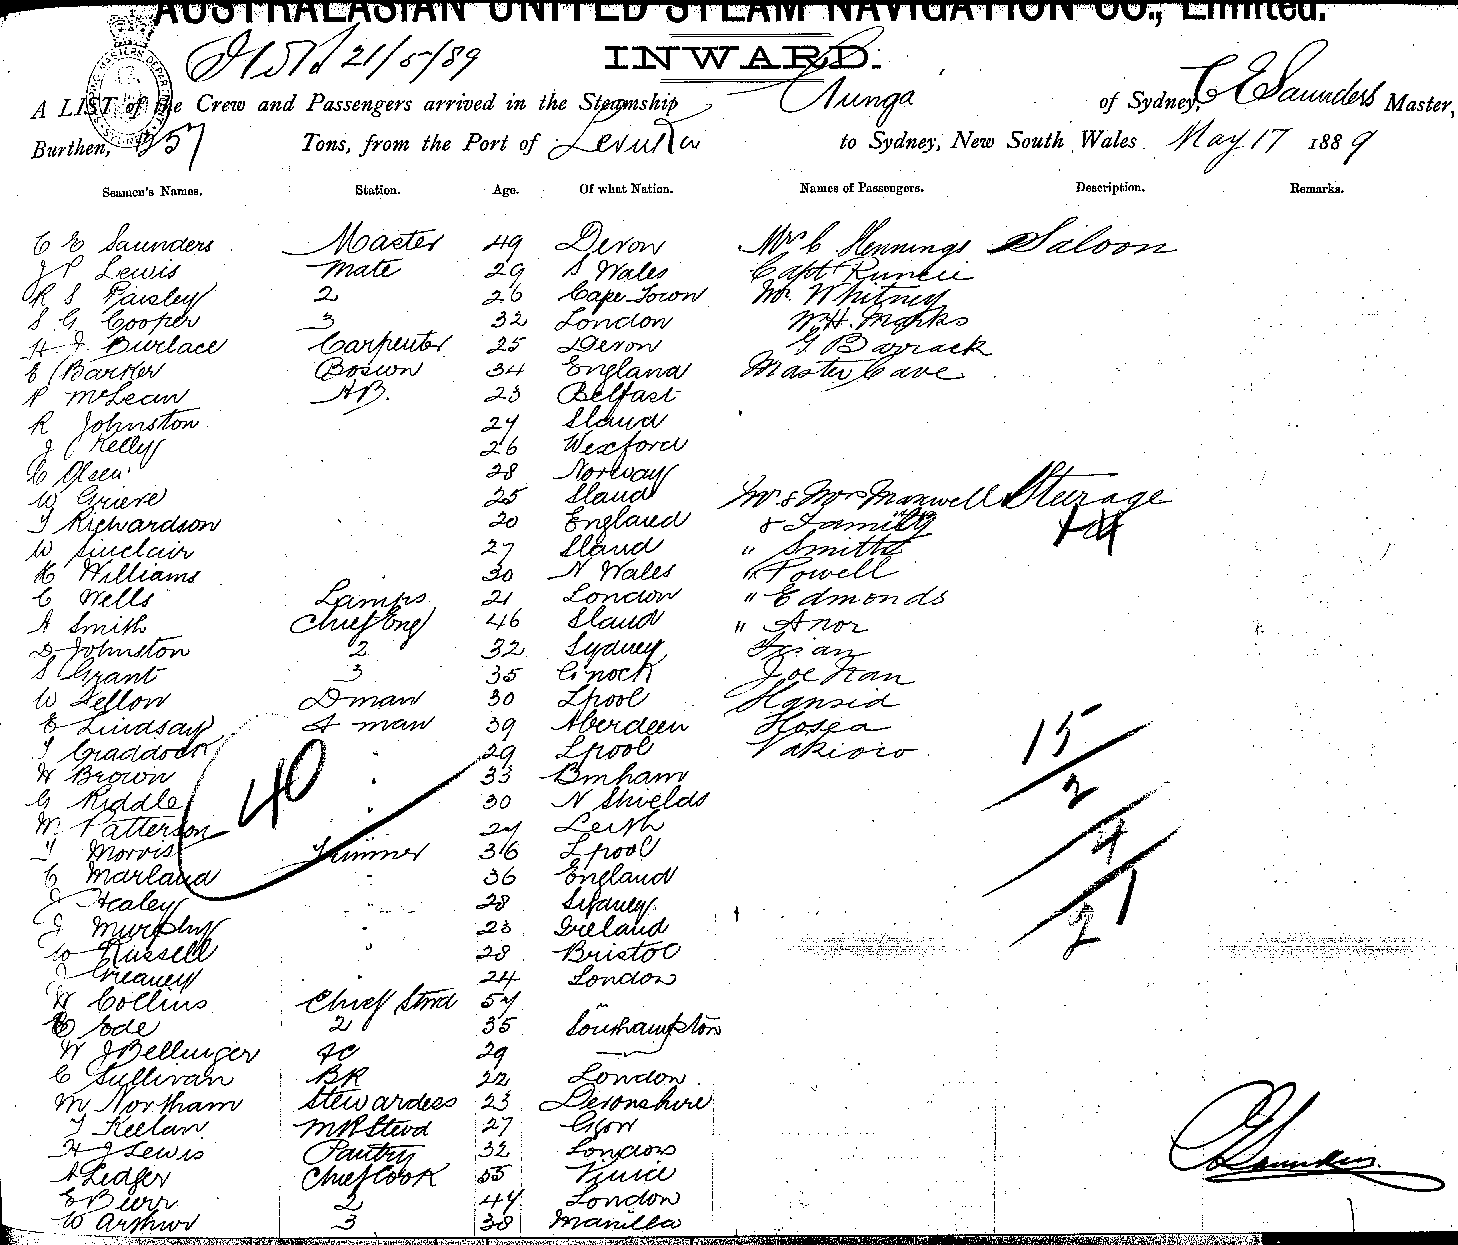 AUSTRALASIAN UNITED STEAM NAVIGATION CO., Limited.
21/5/89 INWARD.
A LIST of the Crew and Passengers arrived in the Steamship of Sydney, C E Saunders Master,
Burthen, Tons, from the Port of Levuka to Sydney, New South Wales May 17 1889
Seamen's Names. Station. Age. Of what Nation. Names of Passengers. Description. Remarks.
C E Saunders Master 49 Devon Mr C Hennings Saloon
J P Lewis Mate 29 S Wales Capt Runcie
R S Paisley 2 26 Cape Town Mr Whitney
S G Cooper 3 32 London W H Marks
H J Burlace Carpenter 25 Devon G Barrack
E Barker Bosun 34 England Master Cave
P McLean AB. 23 Belfast
R Johnston 24 Sland
J Kelly 26 Wexford
C Olsen 28 Norway
W Grieve 25 Sland Mr & Mrs Maxwell Steerage
T Richardson 20 England & Family
W Sinclair 27 Sland " Smith
H Williams 30 N Wales " Powell
C Wells Lamps 21 London " Edmonds
A Smith Chief Eng 46 Sland "
D Johnston 2 32 Sydney
S Grant 3 35 Gnock
W Fellon Dman 30 Lpool
E Lindsay F man 39 Aberdeen Hosea
T Craddock " 29 Lpool
W Brown " 33 Bmham
G Riddle " 30 N Shields
W Patterson 27 Leith
T Morris Trimmer 36 Lpool
C Marland " 36 England
J Healey " 28 Sydney
J Murphy " 23 Ireland
W Russell " 28 Bristol
J Greaney " 24 London
W Collins Chief Stwd 54 "
C Ede 2 35 Southampton
W J Bellinger FC 29
C Sullivan BR 22 London
M Northam Stewardess 23 Devonshire
T Keelan MR Stwd 27 Ggow
H J Lewis Pantry 32 London
A Ledger Chief Cook 55
E Burr 2 44 London
W Arthur 3 38 Manilla
40
15
2
4
1
2
C E Saunders